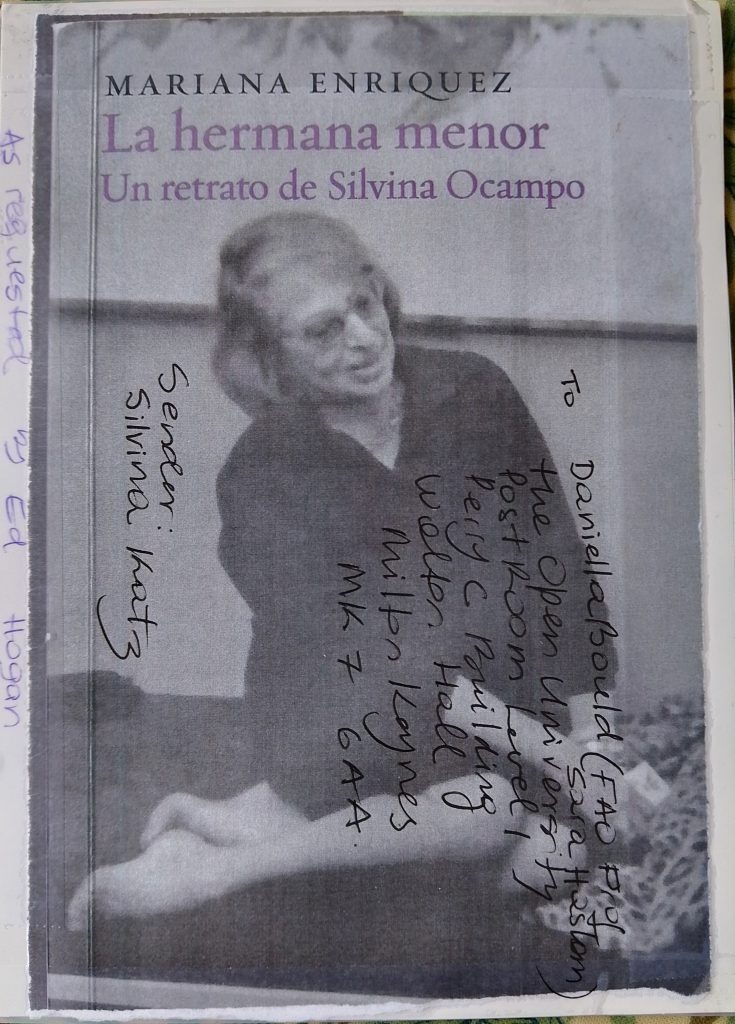 MARIANA ENRIQUEZ
La hermana menor
Un retrato de Silvina Ocampo
To Daniella Bould (FAO Prof
Sara Haslam)
the Open University
Post Room Level 1
Perry C Building
Walton Hall
Milton Keynes
MK7 6AA
Sender:
Silvina Katz
As requested by Ed Hogan